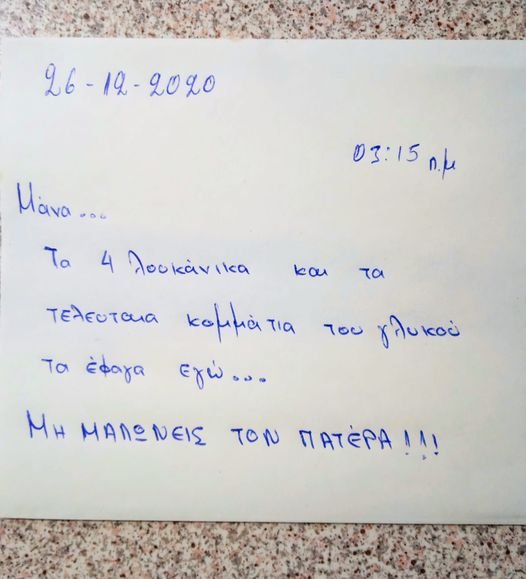 26-12-2020
03:15 π.μ
Μάνα...
Τα 4 λουκάνικα και τα
τελευταια κομμάτια του γλυκού
τα έφαγα εγώ...
ΜΗ ΜΑΛΩΝΕΙΣ ΤΟΝ ΠΑΤΕΡΑ!!!